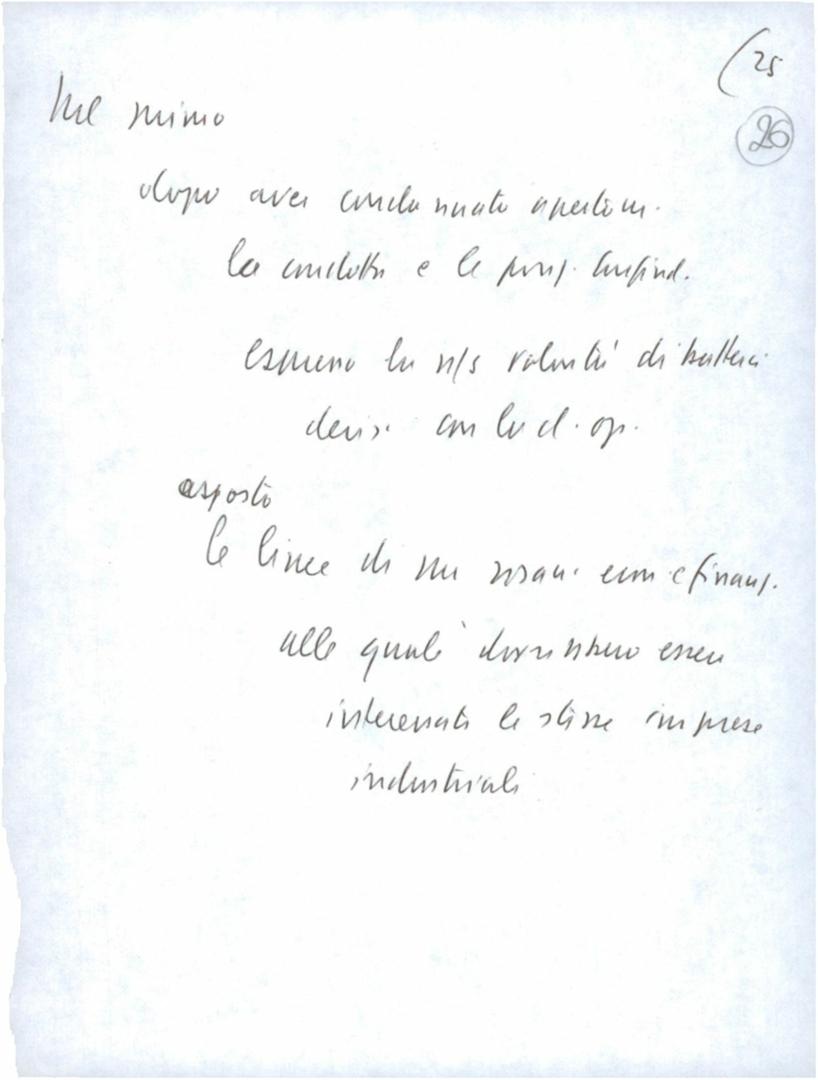 (25
26
Nel
dopo aver condannato apertam.
la condotta e le Confind.
espresso la n/s volontà di batterci
decisi con la cl. op.
esposto
le linee di un risan. econ e finanz.
alle quali dovrebbero essere
interessate le stesse imprese
industriali